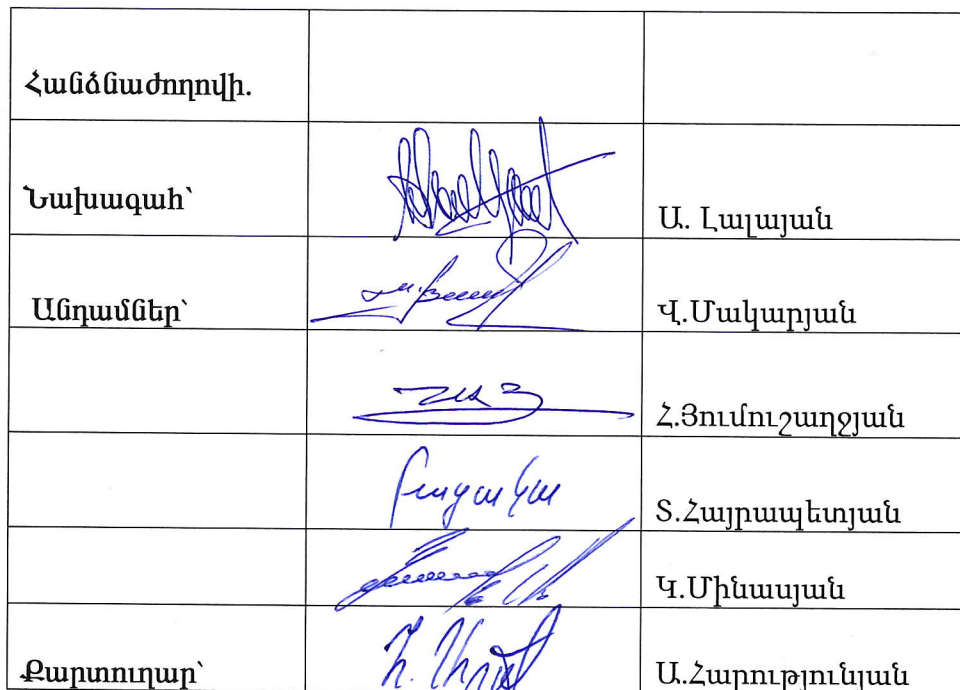 Հանձնաժողովի.
Նախագահ՝ Ա. Լալայան
Անդամներ՝ Վ.Մակարյան
Հ.Յումուշաղջյան
Տ.Հայրապետյան
բացակա
Կ.Մինասյան
Քարտուղար՝ Ա.Հարությունյան